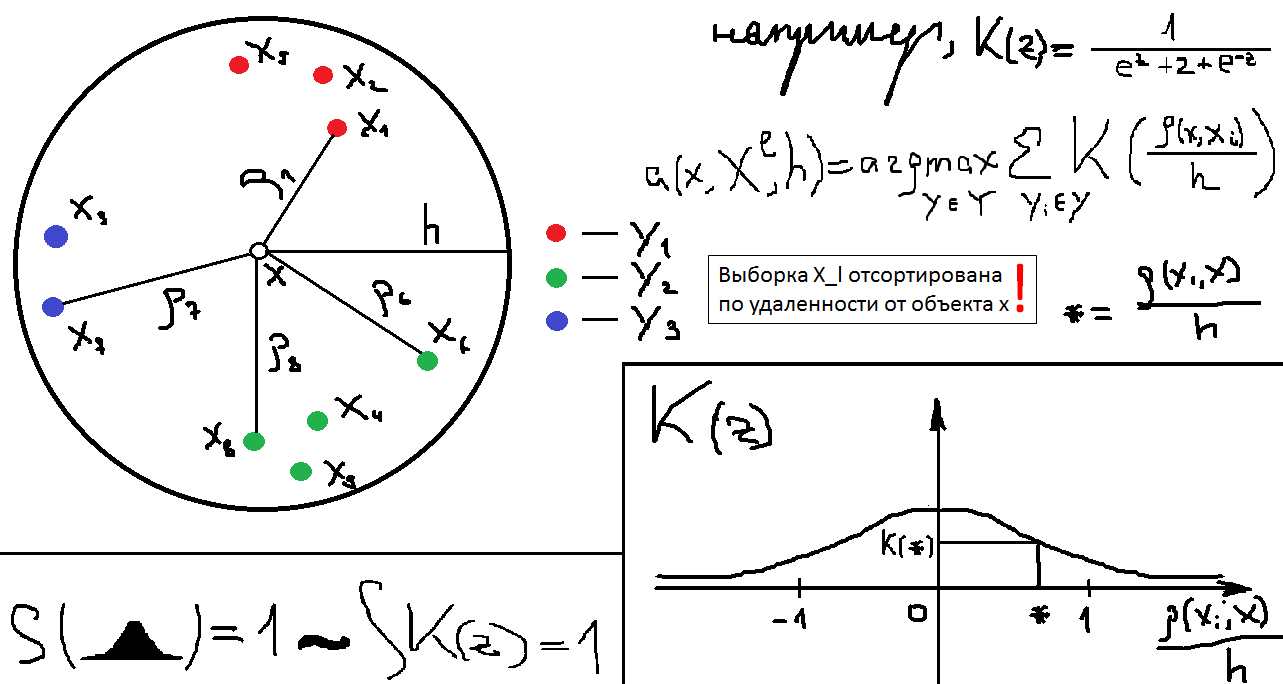 x₅
x₂
x₁
ρ₁
x₃
h
x
ρ₇
ρ₆
x₇
ρ₈
x₆
x₄
x₈
x₉
например, K(z) = 1 / (e^z + 2 + e^-z)
a(x, X^l, h) = argmax y∈Y Σ yᵢ∈y K(ρ(x, xᵢ) / h)
— Y₁
— Y₂
— Y₃
Выборка X_l отсортирована
по удаленности от объекта x !
* = ρ(xᵢ, x) / h
K(z)
K(*)
-1 0 * 1
ρ(xᵢ, x) / h
S( ) = 1 ~ ∫K(z) = 1